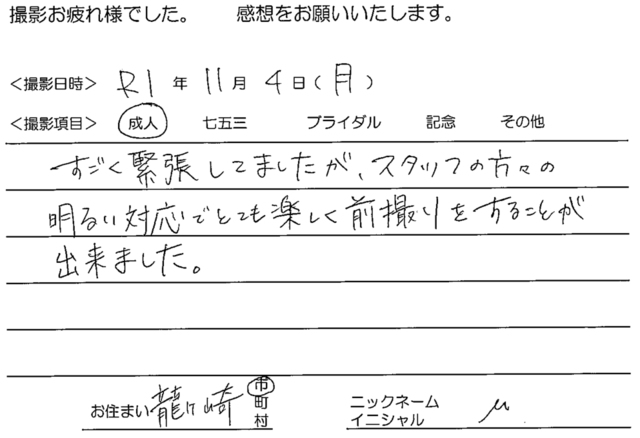 撮影お疲れ様でした。 感想をお願いいたします。
<撮影日時> R1 年 11月 4日(月)
<撮影項目> 成人 七五三 ブライダル 記念 その他
すごく緊張してましたが、スタッフの方々の
明るい対応でとても楽しく前撮りをすることが
出来ました。
お住まい 龍ヶ崎 市 町 村 ニックネーム イニシャル